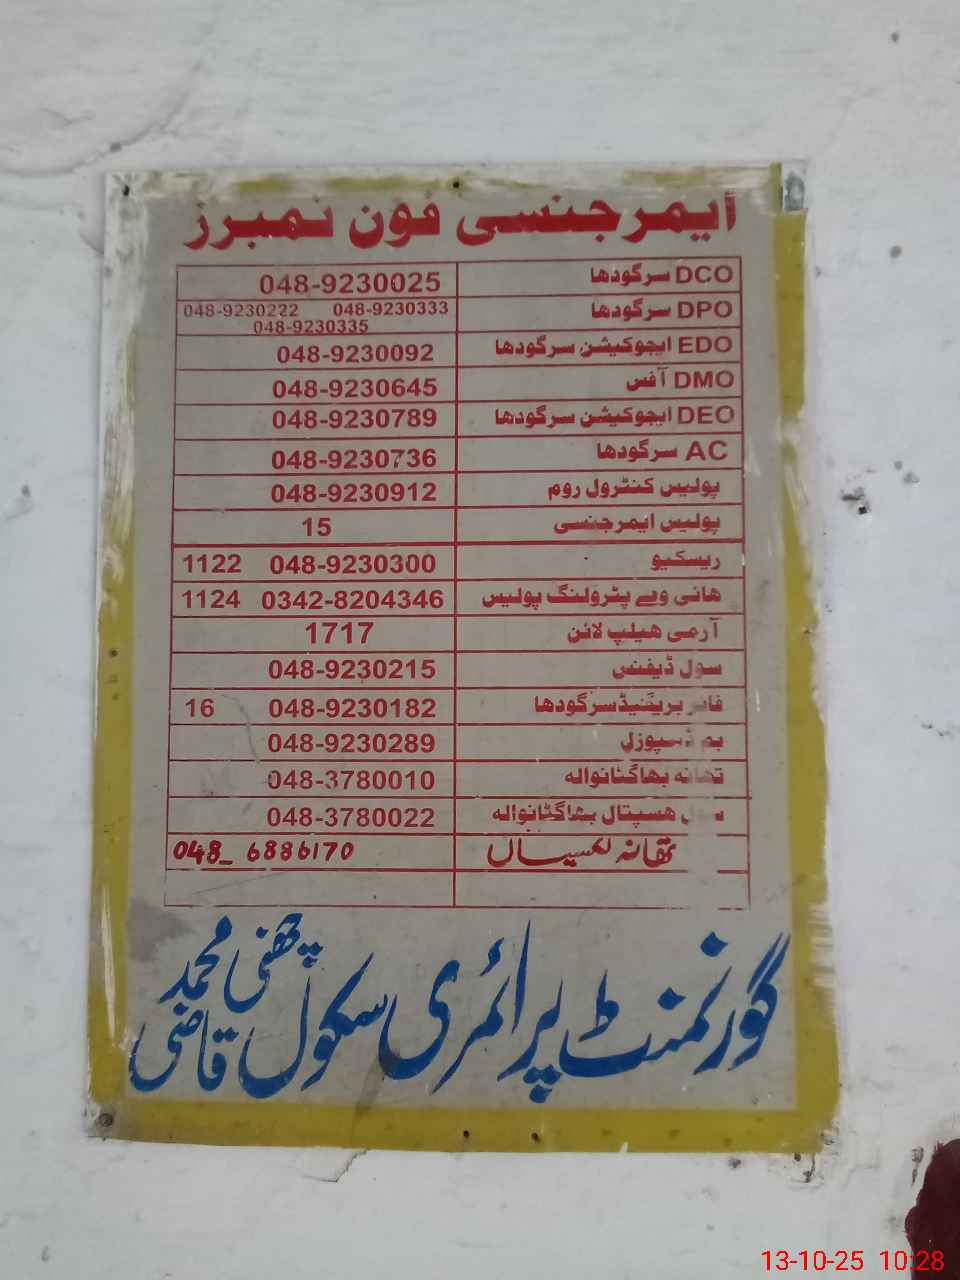 ایمرجنسی فون نمبرز
DCO سرگودھا 048-9230025
DPO سرگودھا 048-9230222 048-9230333
048-9230335
EDO ایجوکیشن سرگودھا 048-9230092
DMO آفس 048-9230645
DEO ایجوکیشن سرگودھا 048-9230789
AC سرگودھا 048-9230736
پولیس کنٹرول روم 048-9230912
پولیس ایمرجنسی 15
ریسکیو 048-9230300 1122
ھائی وے پٹرولنگ پولیس 0342-8204346 1124
آرمی ھیلپ لائن 1717
سول ڈیفنس 048-9230215
فائر بریگیڈ سرگودھا 048-9230182 16
بم ڈسپوزل 048-9230289
تھانہ بھاگٹانوالہ 048-3780010
سول ھسپتال بھاگٹانوالہ 048-3780022
تھانہ لکسیاں 048_ 6886170
گورنمنٹ پرائمری سکول چھنی محمد قاضی
13-10-25 10:28